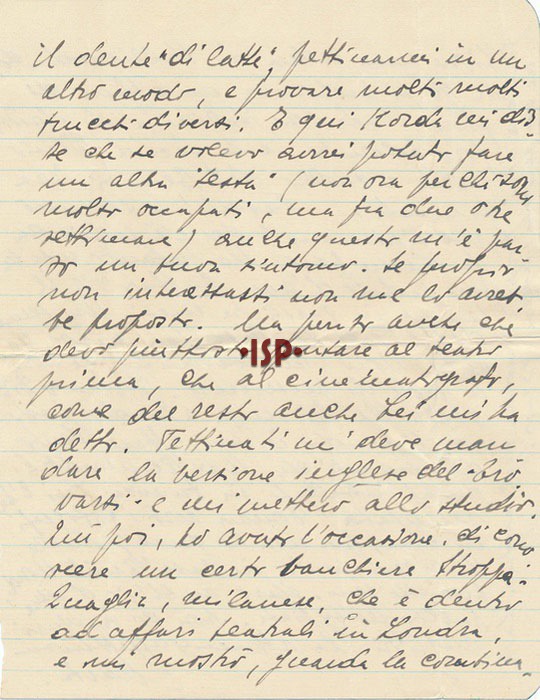 il dente "di latte", pettinarmi in un
altro modo, e provare molti molti
trucchi diversi. E qui Korda mi dis-
se che se volevo avrei potuto fare
un altro "test" (non ora perchè sono
molto occupati, ma fra due o tre
settimane) anche questo m'è par-
so un buon sintomo. Se proprio
non interessassi non me lo avreb
be proposto. Ma penso anche che
devo piuttosto pensare al teatro
prima, che al cinematografo,
come del resto anche Lei mi ha
detto. Pettinati mi deve man
dare la versione inglese del "Tro
varsi" e mi metterò allo studio.
Qui poi, ho avuto l'occasione di cono
scere un certo banchiere Stroppa-
Quaglia, milanese, che è dentro
ad affari teatrali in Londra,
e mi mostrò, guarda la combina-
·ISP·